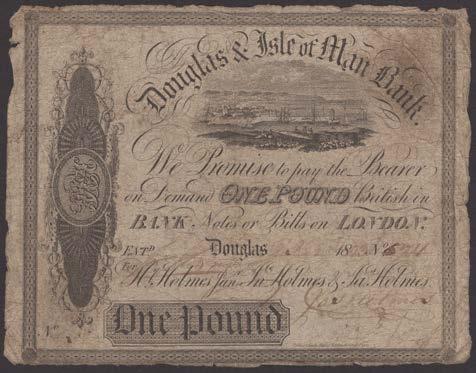 Douglas & Isle of Man Bank.
We Promise to pay the Bearer
on Demand ONE POUND British in
BANK Notes or Bills on LONDON.
ENTD
Douglas 18 No
For Hy. Holmes Junr. Jno. Holmes & Jas. Holmes.
Jas Holmes
One Pound